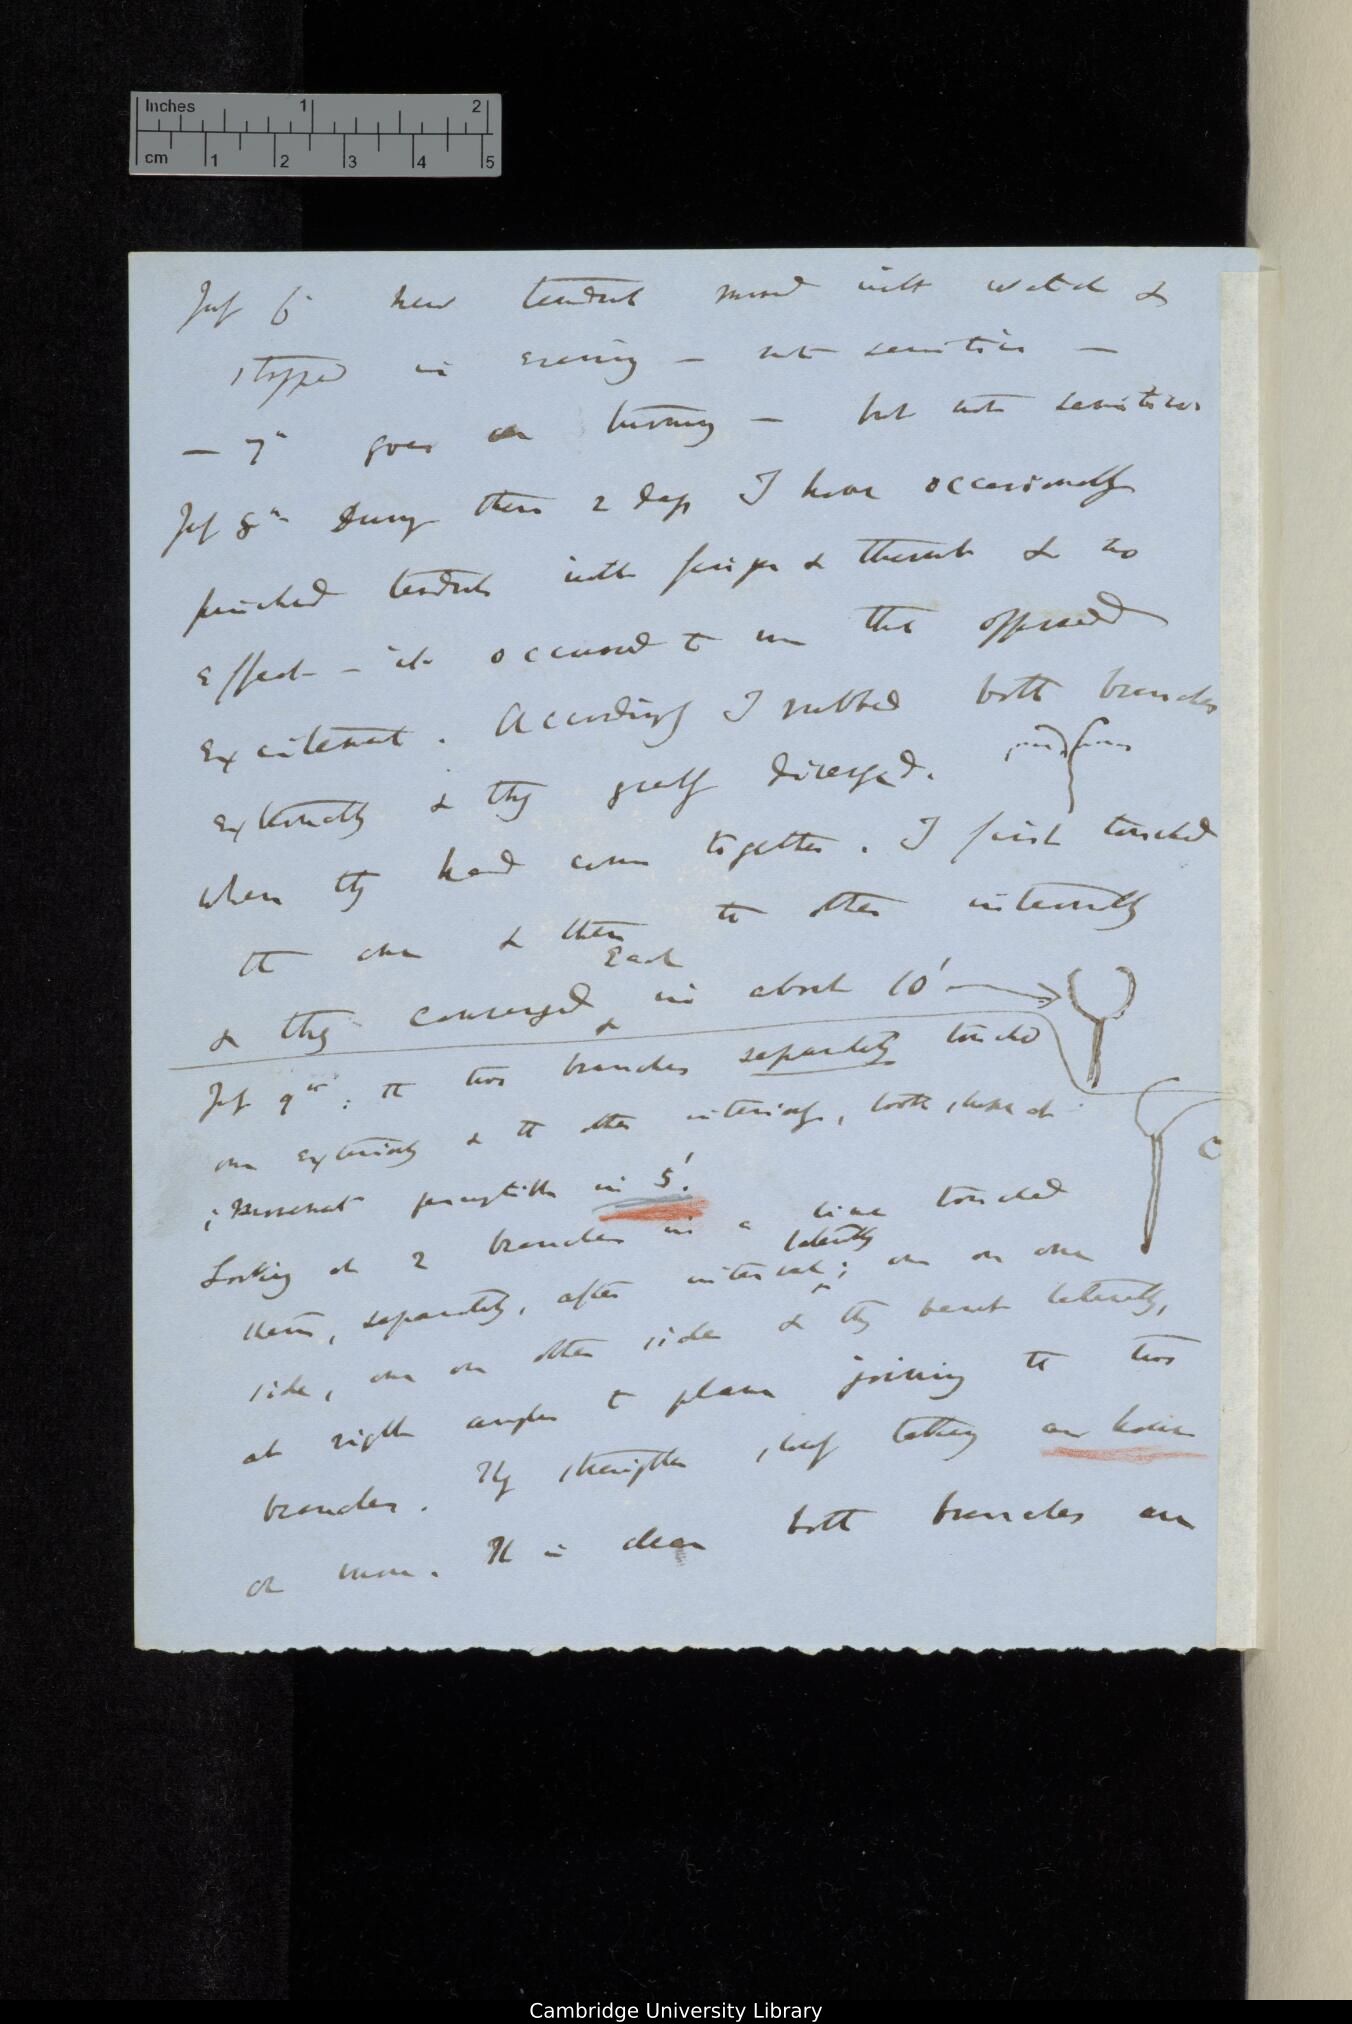 Inches 1 2
cm 1 2 3 4 5
July 6 new tendril moved with watch &
stopped in evening — not sensitive —
— 7th goes on turning — but not sensitive
July 8th During these 2 days I have occasionally
pinched tendrils with finger & thumb & no
effect — it occurred to me that opposed
excitement. Accordingly I rubbed both branches
externally & they greatly diverged.
when they had come together. I first touched
the one & then the other internally
& they converged each in about 10'
July 9th: the two branches & separately touched
one exteriorly & the other interiorly, took shape of
; Movement perceptible in 5'.
Looking at 2 branches in a line touched
them, separately, after interval; laterally one on one
side, one on other side & they bent laterally,
at right angles to plane joining the two
branches. They straighten slowly taking an hour
or more. It is clear both branches are
C
Cambridge University Library